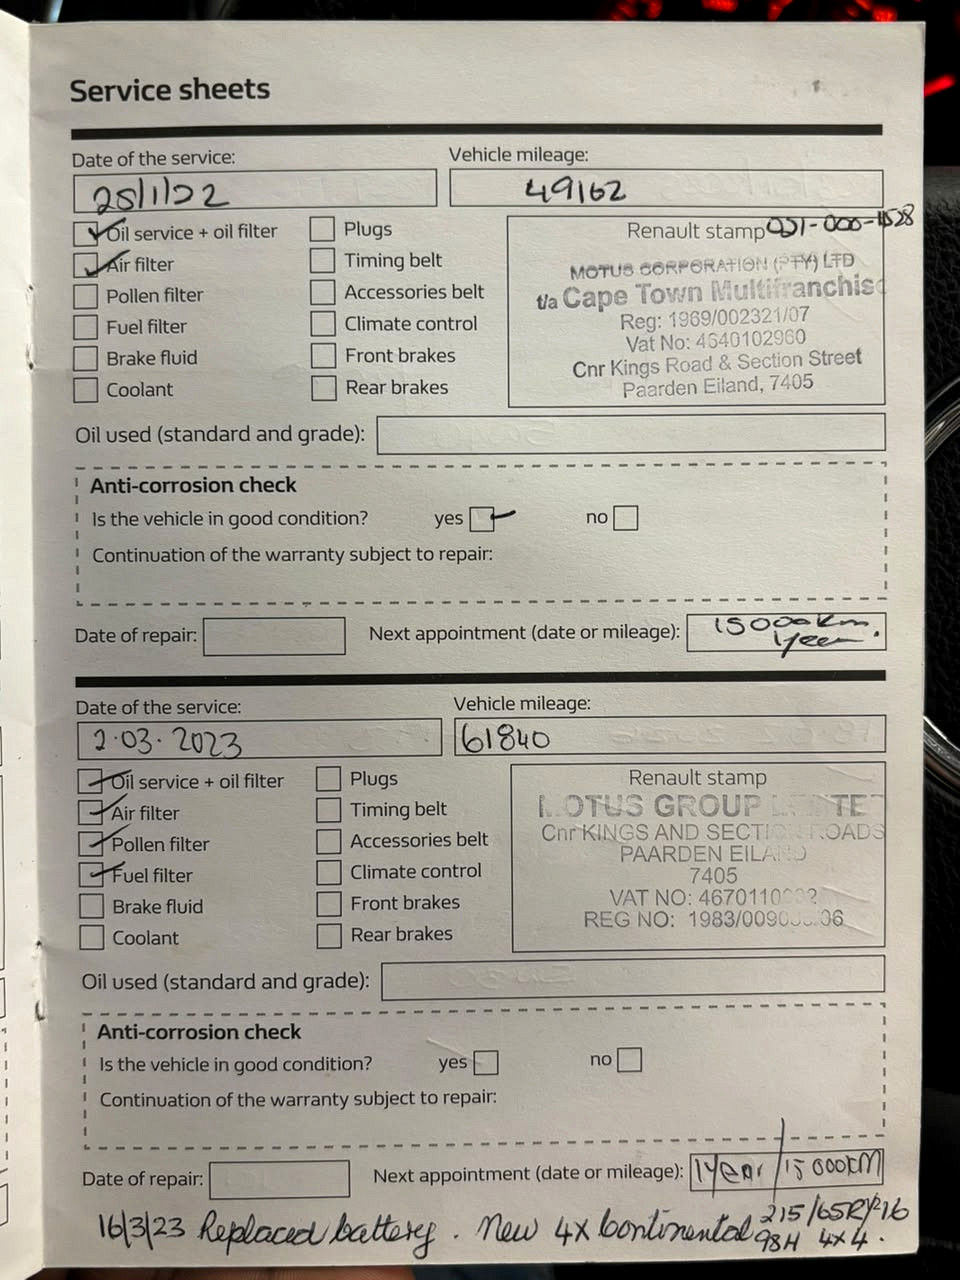 Service sheets
Date of the service: Vehicle mileage:
25/1/22 49162
Oil service + oil filter Plugs Renault stamp 021-000-
Air filter Timing belt MOTUS CORPORATION (PTY) LTD
Pollen filter Accessories belt t/a Cape Town Multifranchise
Fuel filter Climate control Reg: 1969/002321/07
Brake fluid Front brakes Vat No: 4640102960
Coolant Rear brakes Cnr Kings Road & Section Street
Paarden Eiland, 7405
Oil used (standard and grade):
Anti-corrosion check
Is the vehicle in good condition? yes no
Continuation of the warranty subject to repair:
Date of repair: Next appointment (date or mileage): 15000km
1year.
Date of the service: Vehicle mileage:
2.03.2023 61840
Oil service + oil filter Plugs Renault stamp
Air filter Timing belt MOTUS GROUP
Pollen filter Accessories belt Cnr KINGS AND SECTION ROADS
Fuel filter Climate control PAARDEN EILAND
Brake fluid Front brakes 7405
Coolant Rear brakes VAT NO:
REG NO:
Oil used (standard and grade):
Anti-corrosion check
Is the vehicle in good condition? yes no
Continuation of the warranty subject to repair:
Date of repair: Next appointment (date or mileage): 1Year/15000KM
16/3/23 Replaced battery. New 4x Continental 215/65R/16
98H 4x4.